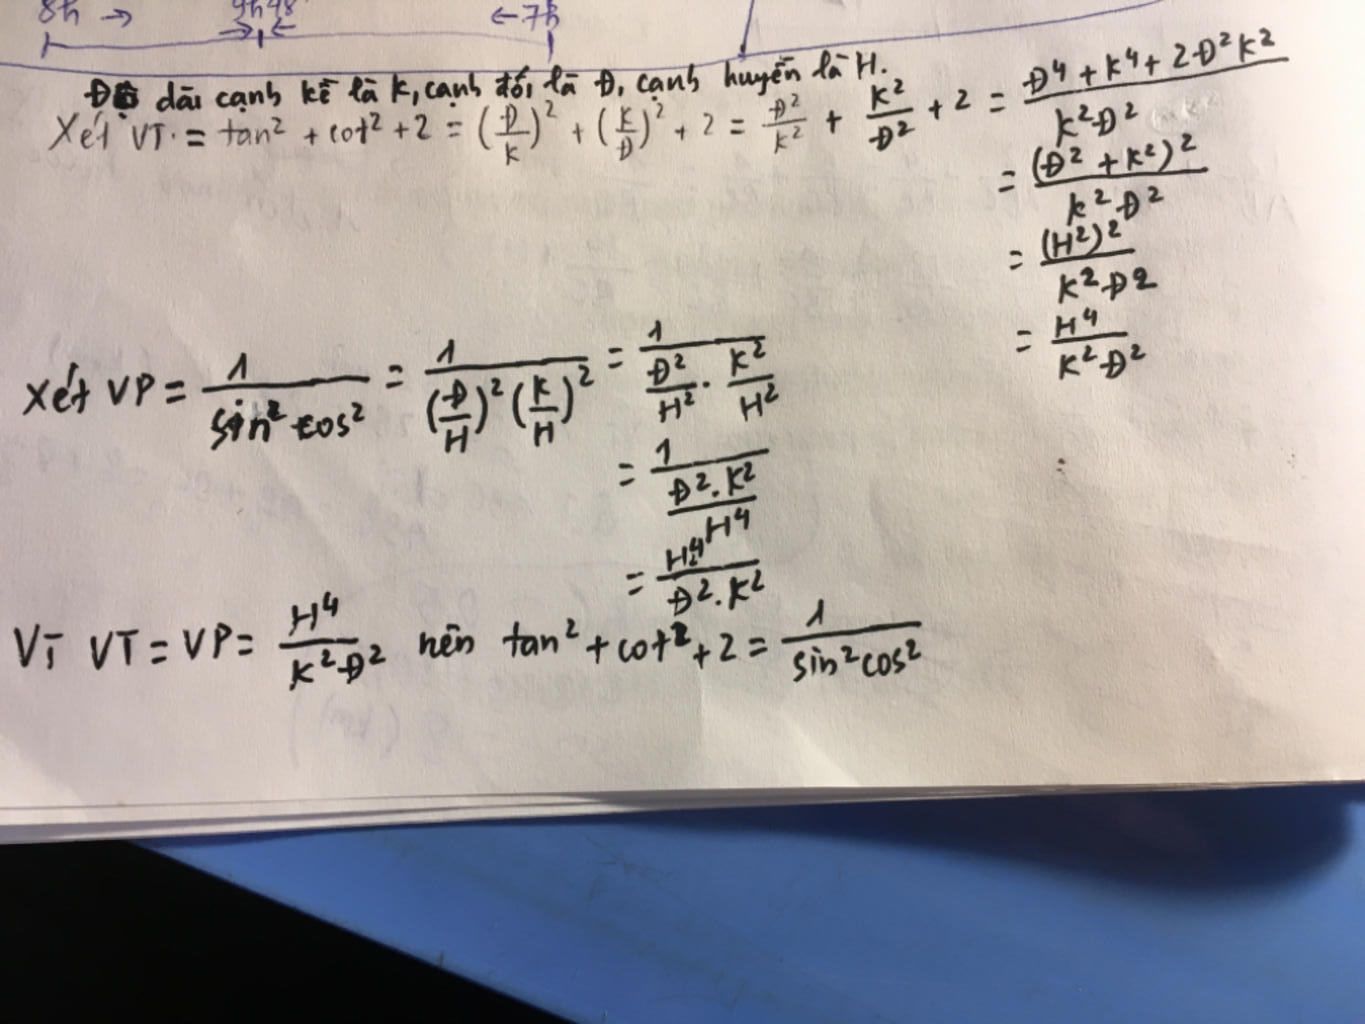 8h → 9h48 ← 7h
Độ dài cạnh kề là K, cạnh đối là Đ, cạnh huyền là H.
Xét VT = tan² + cot² + 2 = (Đ/K)² + (K/Đ)² + 2 = Đ²/K² + K²/Đ² + 2 = (Đ⁴ + K⁴ + 2Đ²K²)/(K²Đ²)
= (Đ² + K²)²/(K²Đ²)
= (H²)²/(K²Đ²)
= H⁴/(K²Đ²)
Xét VP = 1/(sin² cos²) = 1/((Đ/H)² (K/H)²) = 1/(Đ²/H² . K²/H²)
= 1/(Đ².K²/H⁴)
= H⁴/(Đ².K²)
Vì VT = VP = H⁴/(K²Đ²) nên tan² + cot² + 2 = 1/(sin²cos²)